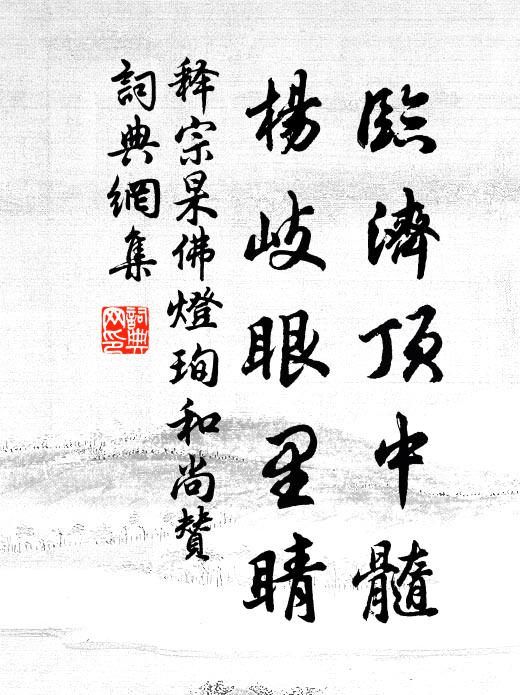 臨濟頂中髓
楊岐眼里睛
释宗杲佛燈珣和尚贊
詞典網集
詞典网印